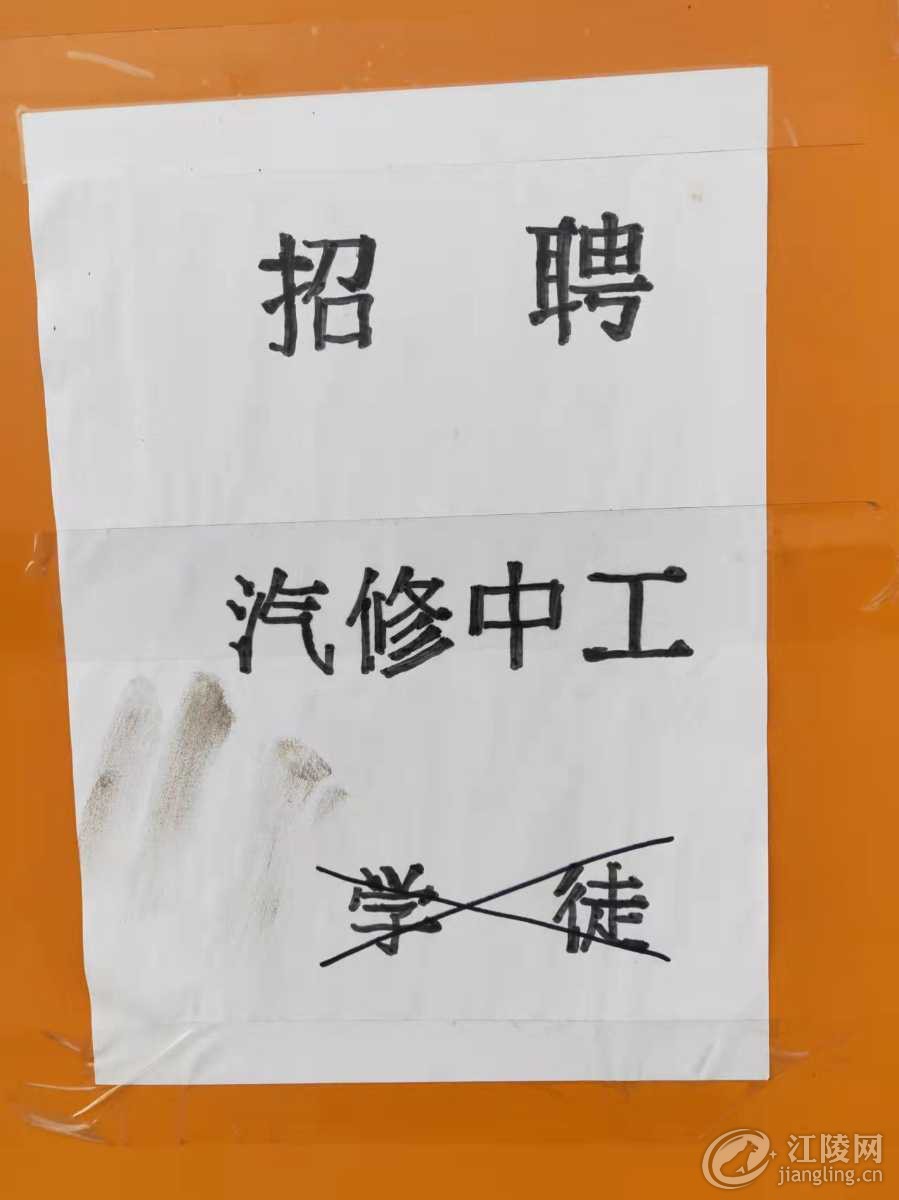 招 聘
汽修中工
学 徒
江陵网
jiangling.cn